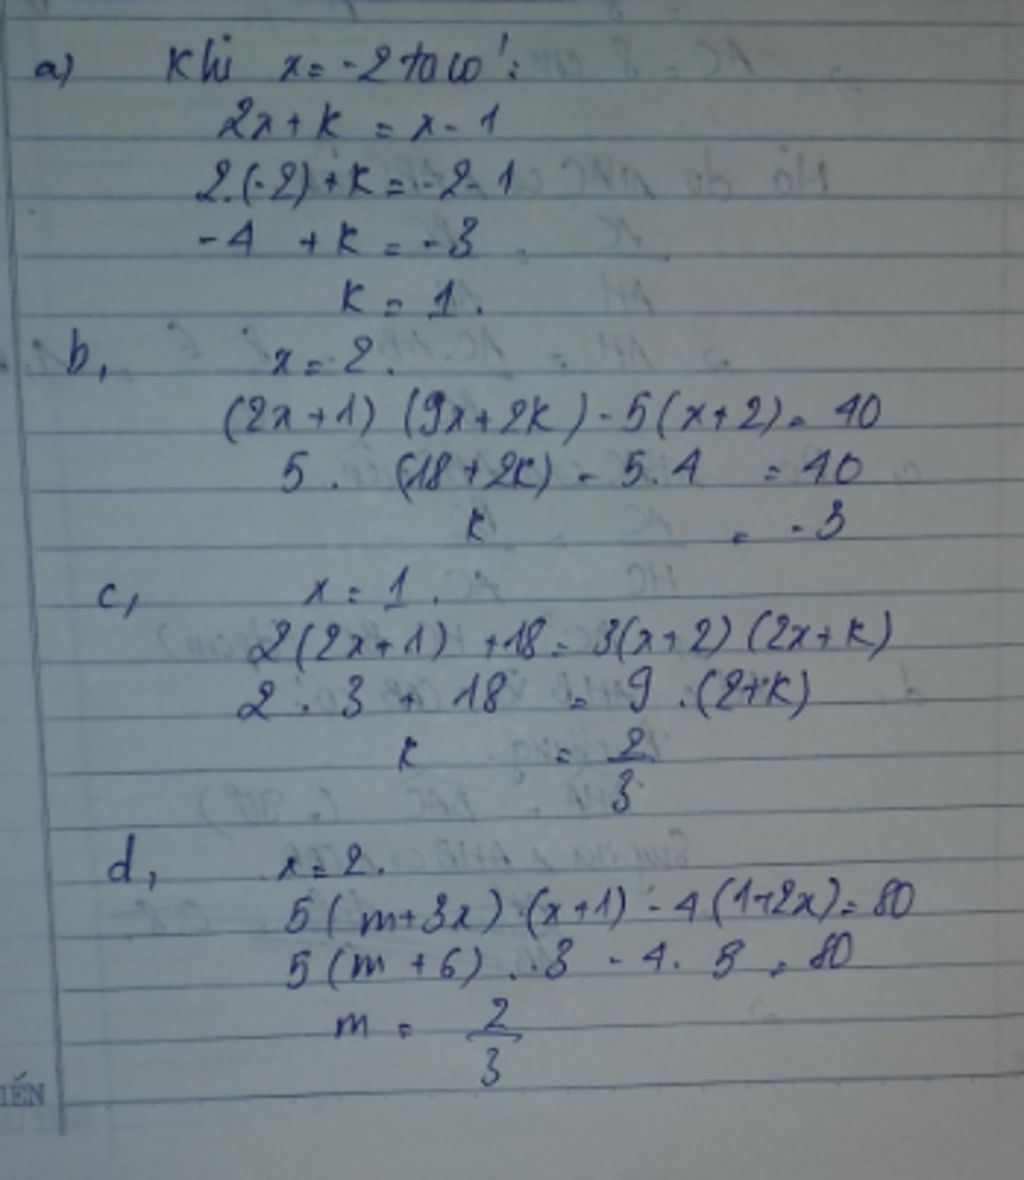 a) Khi x = -2 ta có:
2x + k = x - 1
2.(-2) + k = -2 - 1
-4 + k = -3
k = 1.
b, x = 2.
(2x+1) (9x+2k) - 5(x+2) = 40
5. (18+2k) - 5.4 = 40
k = -3
c, x = 1.
2(2x+1) + 18 = 3(x+2)(2x+k)
2.3 + 18 = 9.(2+k)
k = 2/3
d, x = 2.
5(m+3x)(x+1) - 4(1+2x) = 80
5(m+6).3 - 4.5 = 80
m = 2/3
IẾN